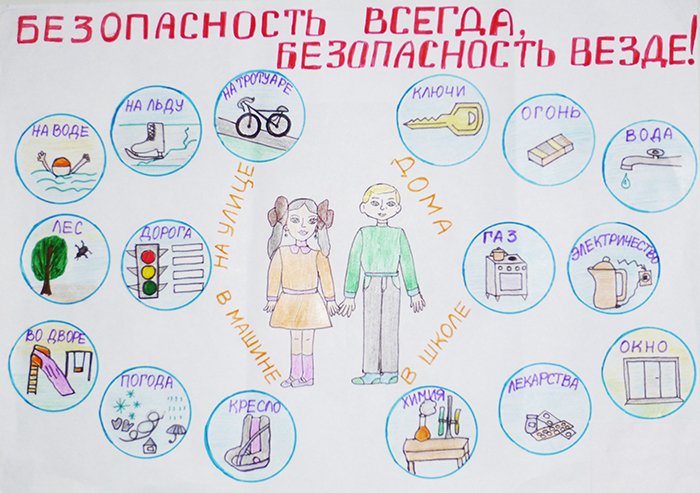 БЕЗОПАСНОСТЬ ВСЕГДА,
БЕЗОПАСНОСТЬ ВЕЗДЕ!
НА ВОДЕ
НА ЛЬДУ
НА ТРОТУАРЕ
КЛЮЧИ
ОГОНЬ
ВОДА
НА УЛИЦЕ
ДОМА
ЛЕС
ДОРОГА
ГАЗ
ЭЛЕКТРИЧЕСТВО
В МАШИНЕ
В ШКОЛЕ
ВО ДВОРЕ
ПОГОДА
КРЕСЛО
ХИМИЯ
ЛЕКАРСТВА
ОКНО